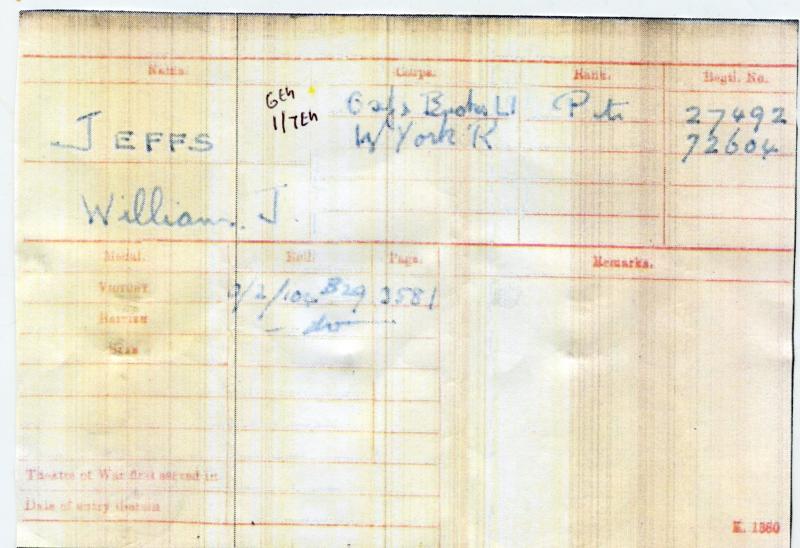 Name. Corps. Rank. Regtl. No.
6th Oxf & Bucks L I Pte 27492
1/7th W York R 72604
JEFFS
William. J.
Medal. Roll. Page. Remarks.
VICTORY B29 3581
BRITISH - do -
STAR
Theatre of War first served in
Date of entry therein
K. 1380